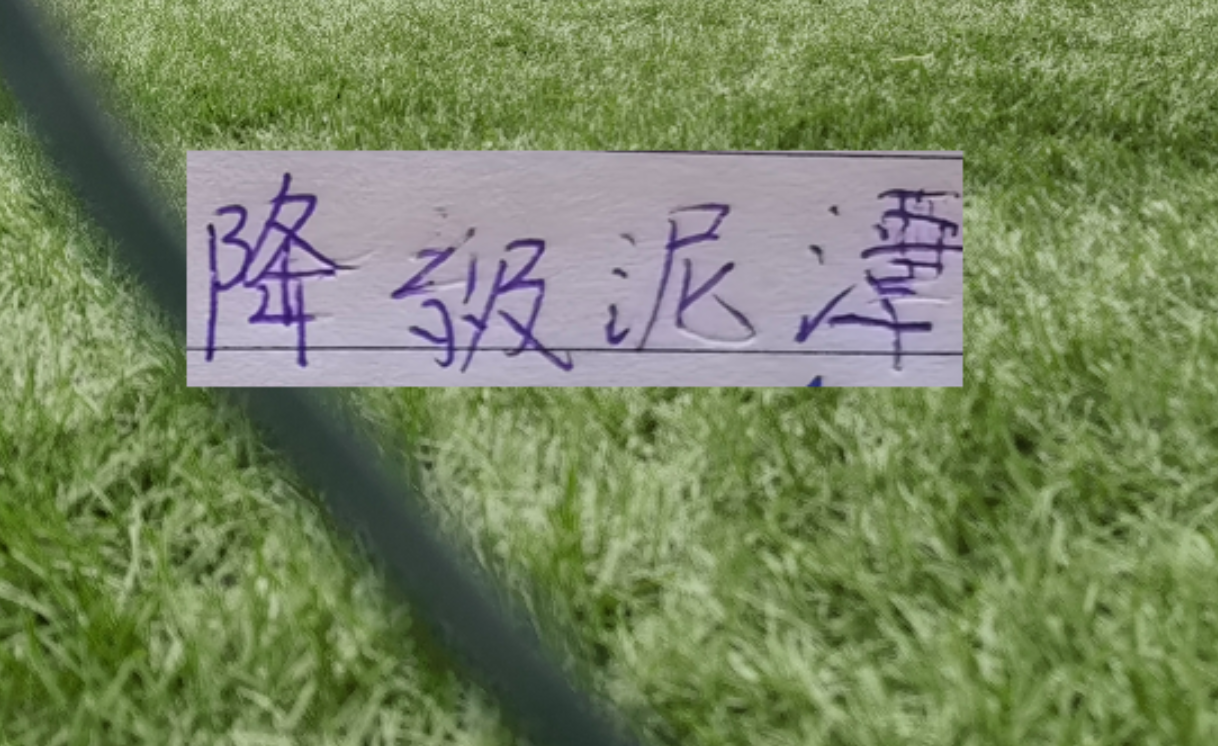 降级泥潭